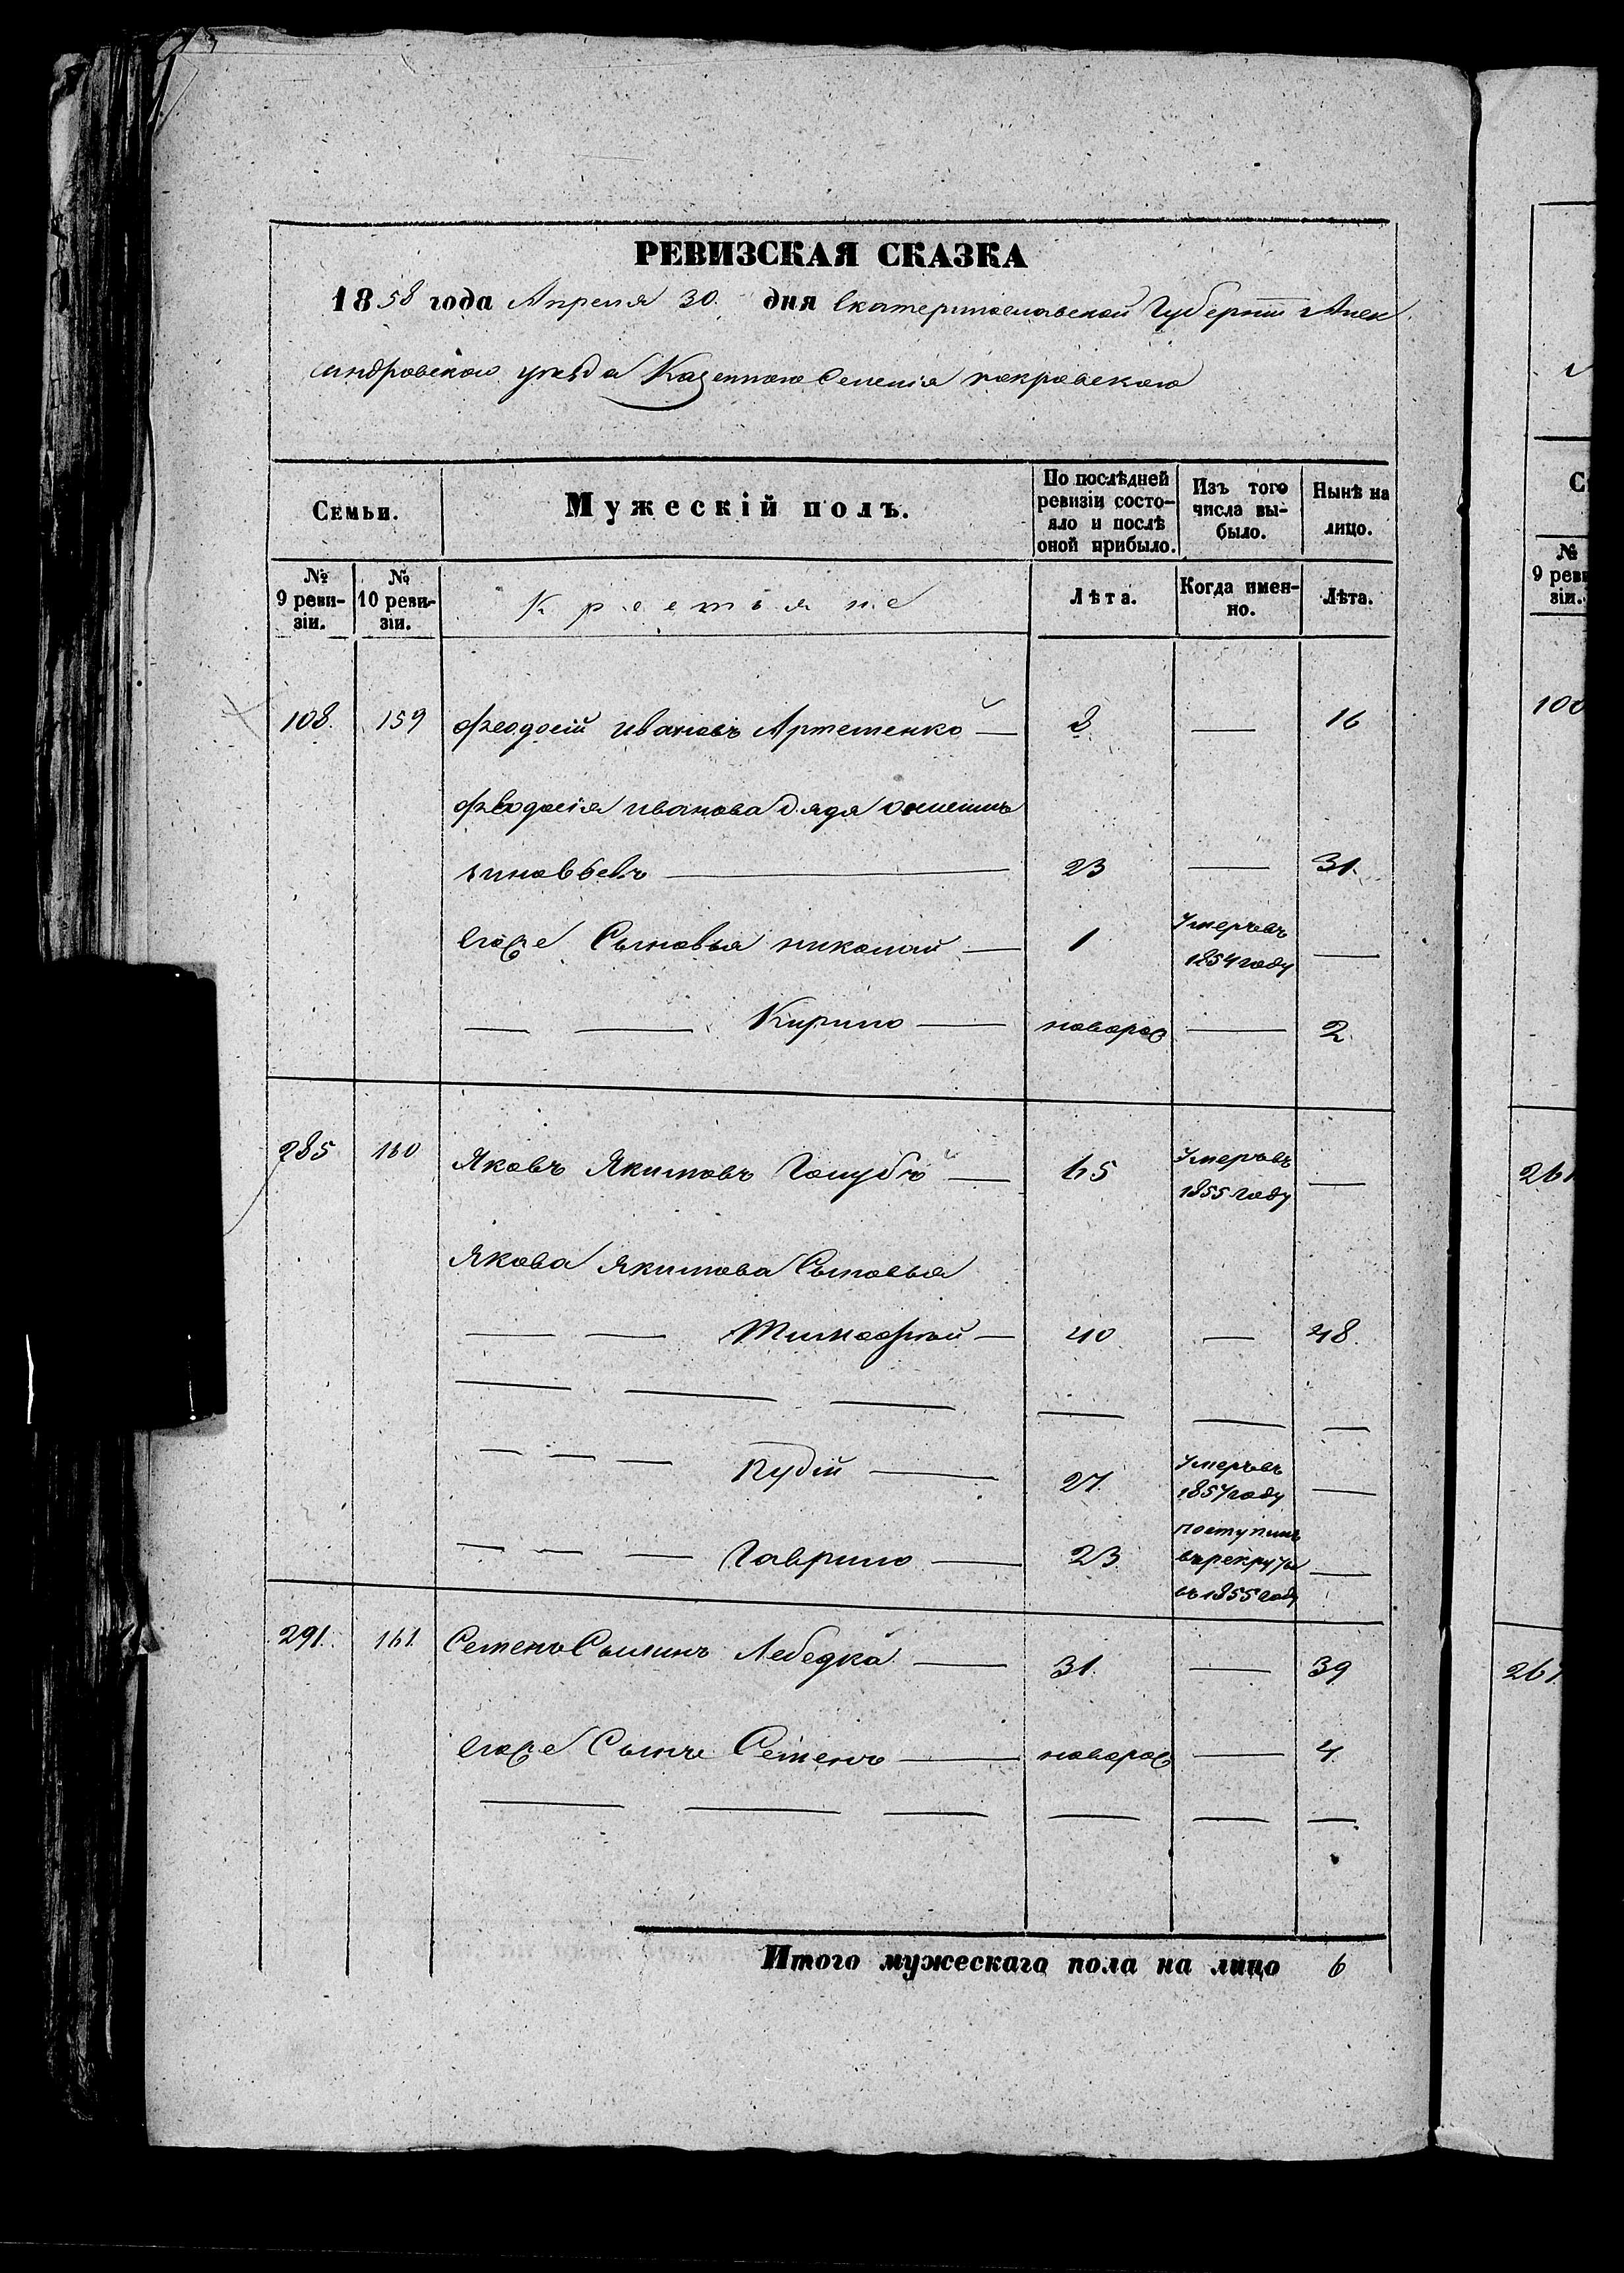 РЕВИЗСКАЯ СКАЗКА
1858 года Апреля 30. дня Екатеринославской Губернiи Алек
сандровского уезда Казенного Селенiя покровского
Семьи.
Мужескiй полъ.
По послѣдней ревизiи состо-яло и послѣ оной прибыло.
Изъ того числа вы-было.
Нынѣ на лицо.
№ 9 реви-зiи.
№ 10 реви-зiи.
Крестьяне
Лѣта.
Когда имен-но.
Лѣта.
108. 159 Феодосiй Ивановъ Артеменко — 8 — 16
Феодосiя Иванова дядя
зиновьевъ — 23 — 31.
Егоже Сыновья николай — 1 Умеръ въ 1854 году —
— — Кирило — новорож — 2
285 160 Яковъ Якимовъ Голубъ — 65 Умеръ въ 1855 году —
Якова Якимова Сыновья
— — Тимофей — 40 — 48.
— — — — — —
— — — — 27. Умеръ въ 1857 году —
— — — Гаврило — 23 поступилъ въ рекруты въ 1855 году —
291. 161. Семенъ Лебедка — 31. — 39
Егоже Сынъ Семенъ — новорож — 4.
— — — — — —
Итого мужескаго пола на лицо 6
№ 9 реви-зiи.